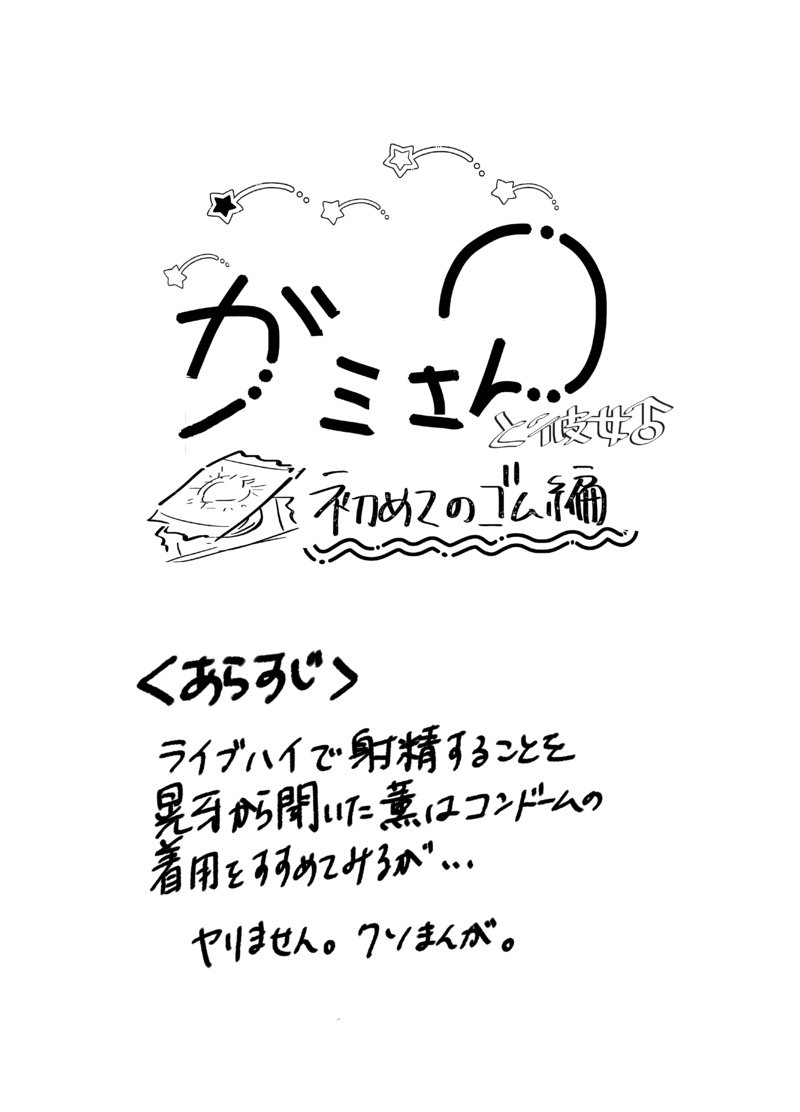 ガミさん
と彼女♪
初めてのゴム編
＜あらすじ＞
ライブハイで射精することを
晃牙から聞いた薫はコンドームの
着用をすすめてみるが…
ヤりません。クソまんが。